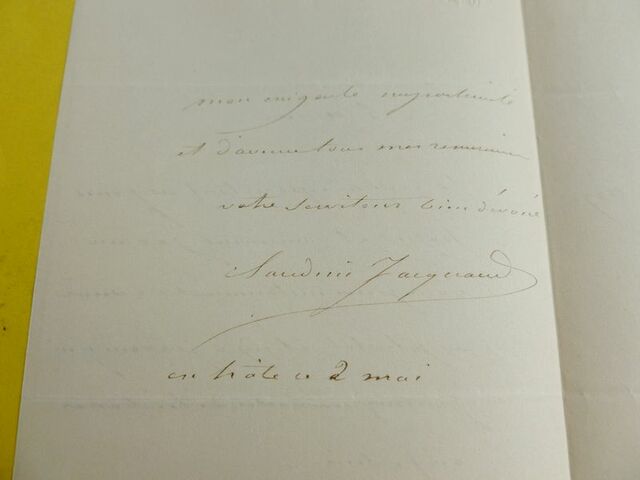 mon exigente importunité
et d'avance tous mes remerciem
votre serviteur bien dévoué
Claudius Jacquand
en hâte ce 2 mai